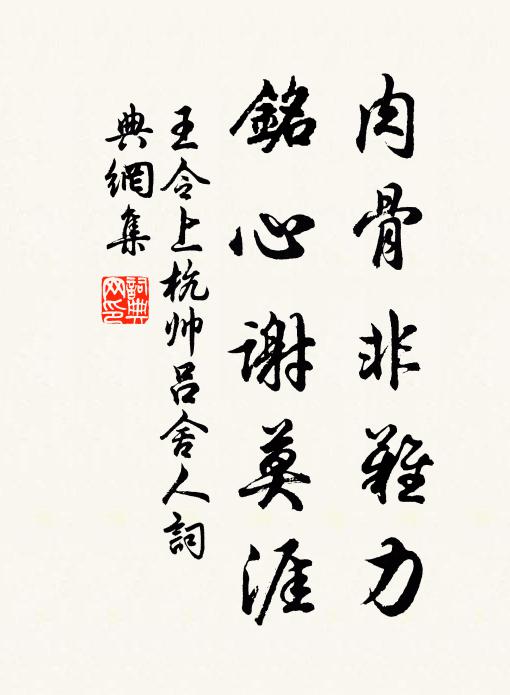 肉骨非難力
銘心谢莫涯
王令上杭帅吕舍人詞
典網集
詞典网印